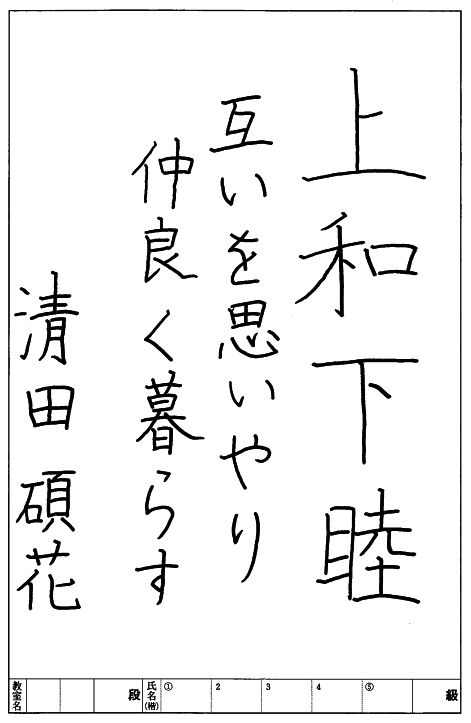 上和下睦
互いを思いやり
仲良く暮らす
清田碩花
級
⑤
4
3
2
①
氏名(楷)
段
教室名